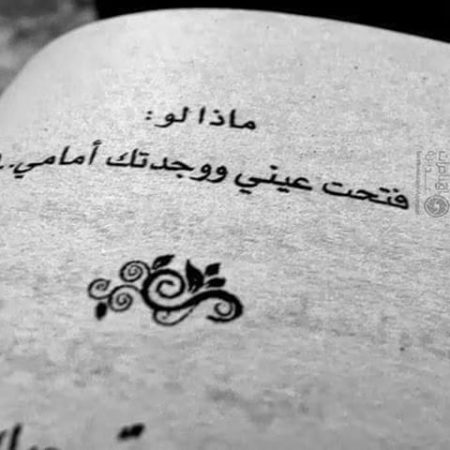 ماذا لو :
فتحت عيني ووجدتك أمامي..